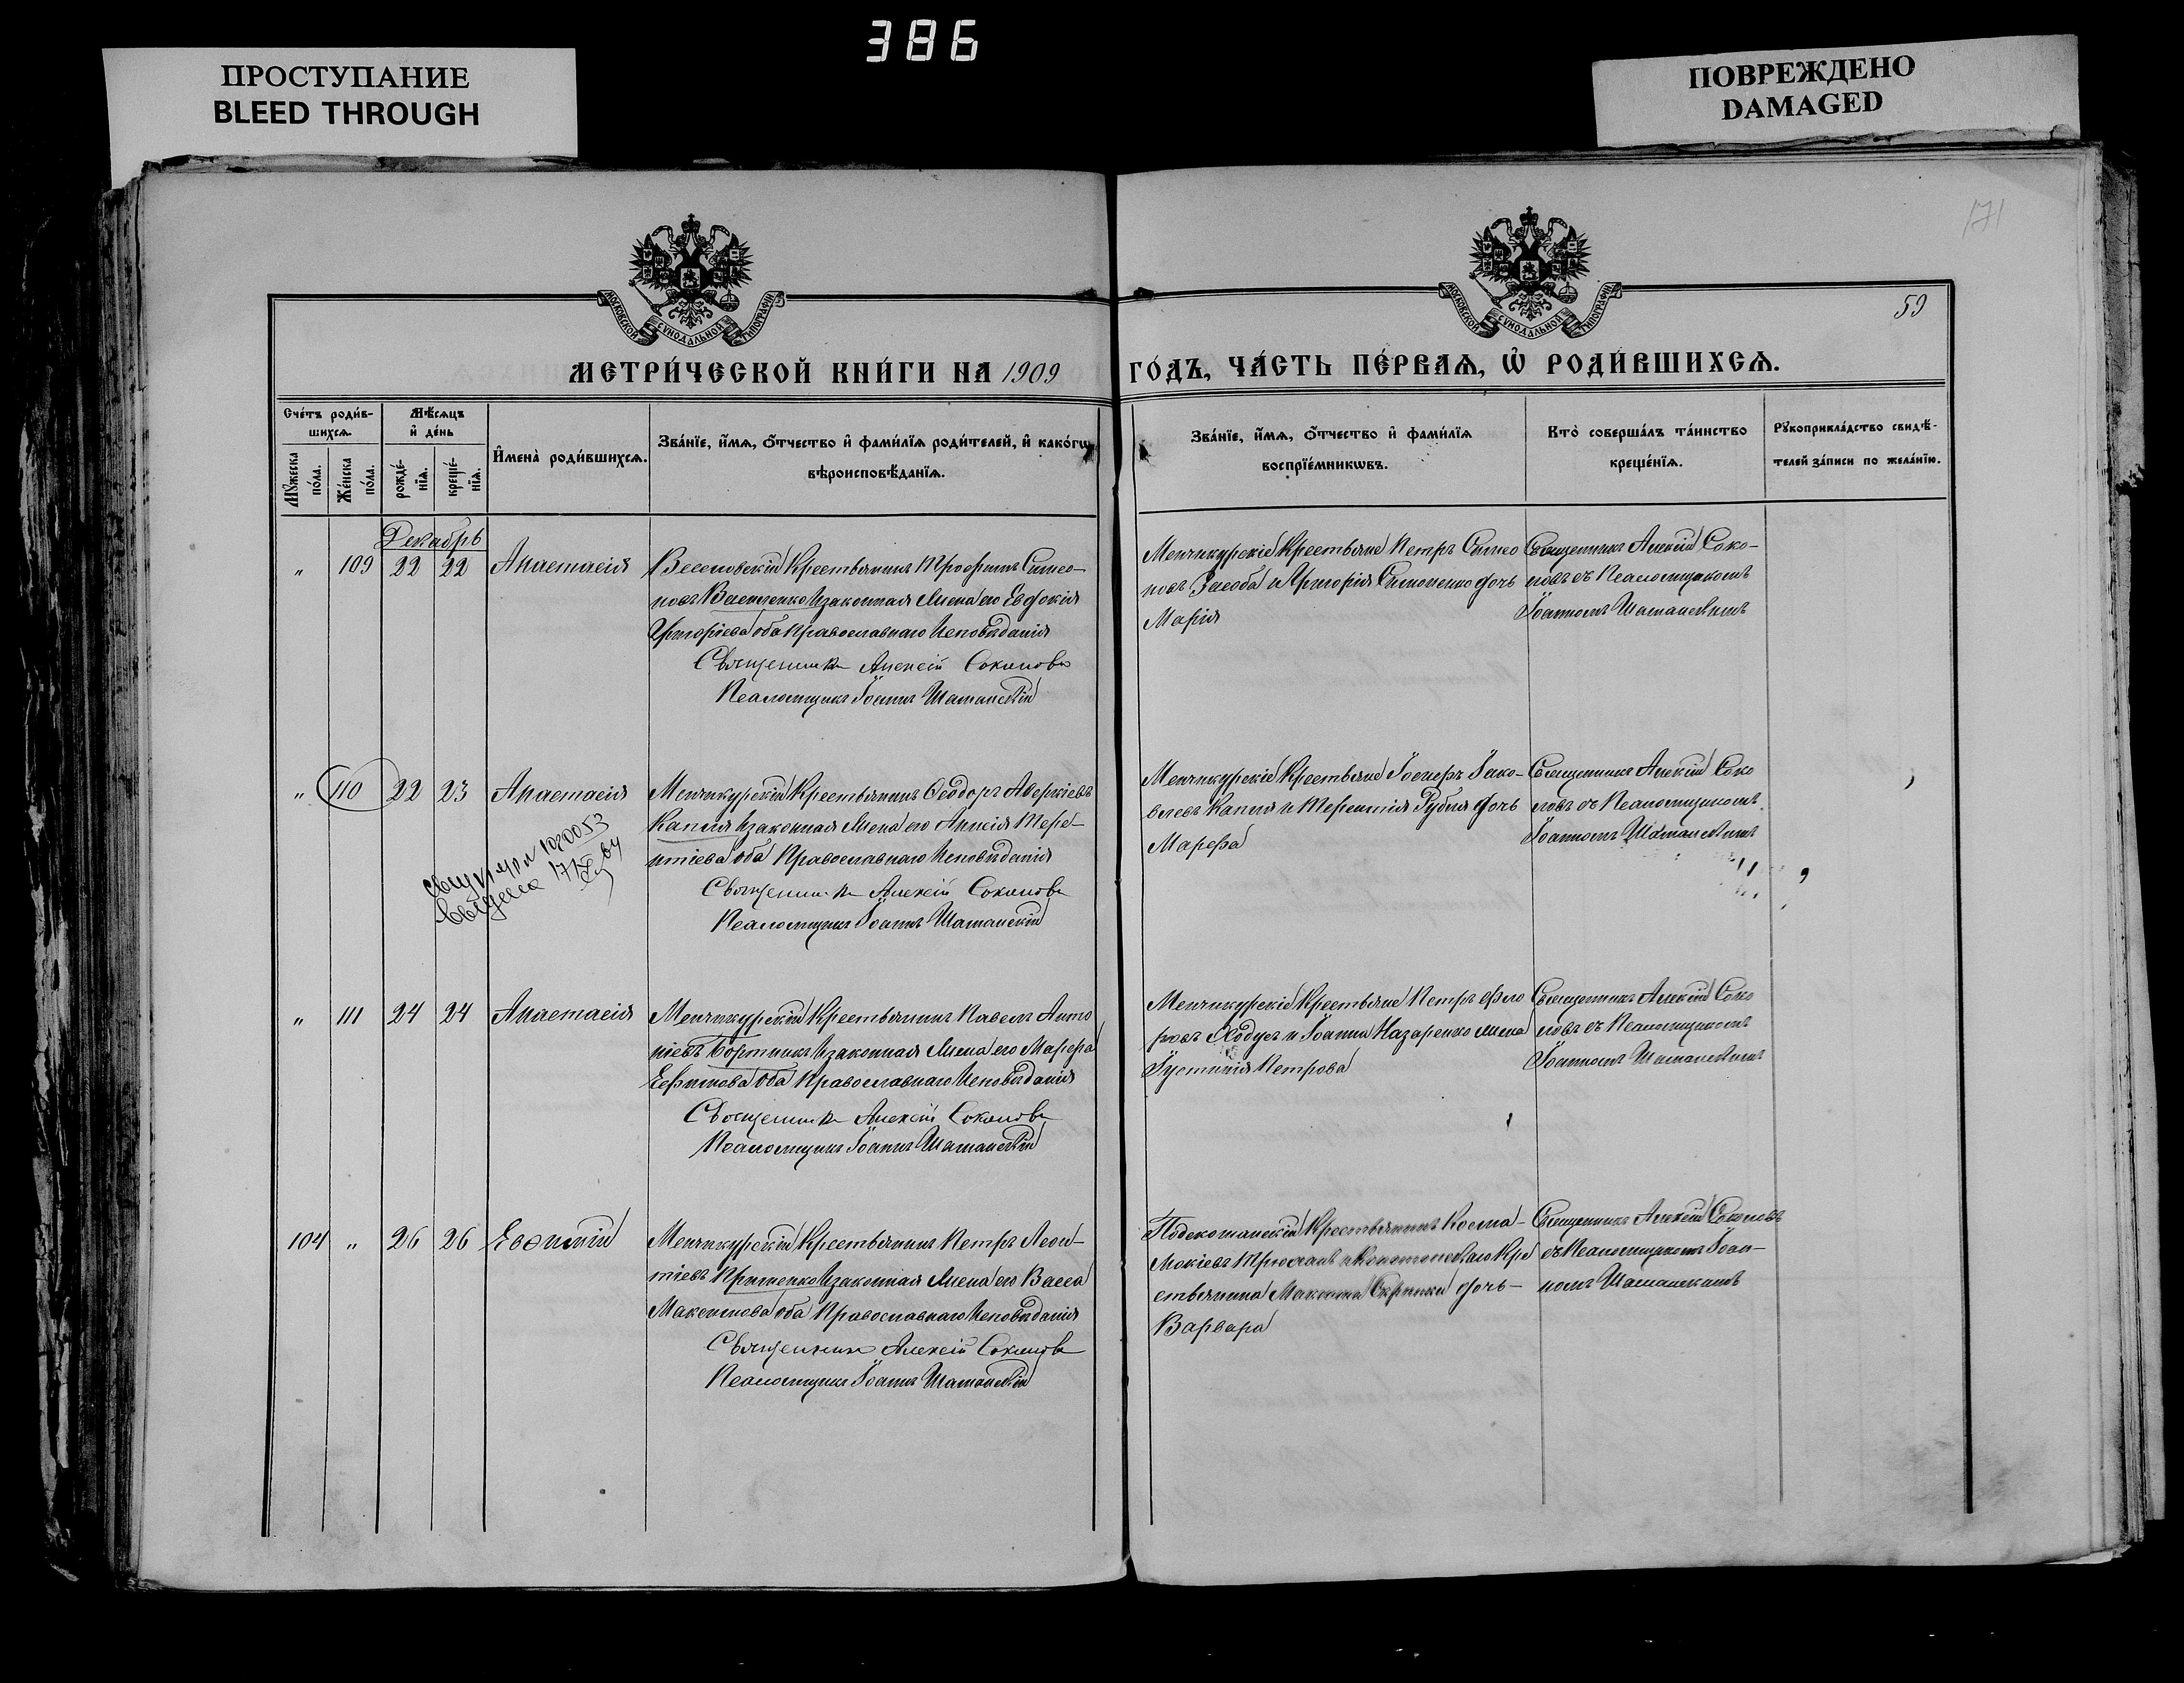 386
ПРОСТУПАНИЕ
BLEED THROUGH
ПОВРЕЖДЕНО
DAMAGED
171
59
МОСКОВСКОЙ СѴНОДАЛЬНОЙ ТИПОГРАФІИ
МОСКОВСКОЙ СѴНОДАЛЬНОЙ ТИПОГРАФІИ
МЕТРИ́ЧЕСКОЙ КНИ́ГИ НА 1909 ГО́ДЪ, ЧА́СТЬ ПЕ́РВАѦ, Ѡ҆ РОДИ́ВШИХСѦ.
Сче́тъ роди́в-
шихсѧ.
Мꙋ́жеска по́ла.
Же́нска по́ла.
Мѣ́сѧцъ
и҆ де́нь
рожде́-
нїѧ.
креще́-
нїѧ.
И҆мена̀ роди́вшихсѧ.
Зва́нїе, и҆́мѧ, ѻ҆́тчество и҆ фами́лїѧ роди́телей, и҆ како́гѡ
вѣроисповѣ́данїѧ.
Зва́нїе, и҆́мѧ, ѻ҆́тчество и҆ фами́лїѧ
воспрїе́мникѡвъ.
Кто̀ соверша́лъ та́инство
креще́нїѧ.
Рꙋкоприкла́дство свидѣ́-
телей за́писи по жела́нїю.
Декабрь
" 109 22 22 Анастасія
Веселовскій Крестьянинъ Трофимъ Симео-
новъ Васюченко и законная жена его Евдокія
Григоріева оба православнаго исповѣданія
Священникъ Алексій Соколовъ
Псаломщикъ Іоаннъ Шатанскій
Менчикурскіе Крестьяне Петръ Симео
новъ и Григорія Симоненко дочь
Марія
Священникъ Алексій Соко-
ловъ съ Псаломщикомъ
Іоанномъ Шатанскимъ
" 110 22 23 Анастасія
Менчикурскій Крестьянинъ Ѳеодоръ Аверкіевъ
Капля и законная жена его Анисія Тере-
нтіева оба православнаго исповѣданія
Священникъ Алексій Соколовъ
Псаломщикъ Іоаннъ Шатанскій
1020053
Менчикурскіе Крестьяне Іосифъ Іако-
влевъ Капля и Терентія Рубля дочь
Марѳа
Священникъ Алексій Соко
ловъ съ Псаломщикомъ
Іоанномъ Шатанскимъ
" 111 24 24 Анастасія
Менчикурскій Крестьянинъ Павелъ Анто
ніевъ Бортникъ и законная жена его Марѳа
Ефимова оба православнаго исповѣданія
Священникъ Алексій Соколовъ
Псаломщикъ Іоаннъ Шатанскій
Менчикурскіе Крестьяне Петръ Фло
ровъ Ходусъ и Іоанна Назаренко жена
Іустинія Петрова
Священникъ Алексій Соко
ловъ съ Псаломщикомъ
Іоанномъ Шатанскимъ
104 " 26 26 Евѳимій
Менчикурскій Крестьянинъ Петръ Леон-
тіевъ Приженко и законная жена его Васса
Максимова оба православнаго исповѣданія
Священникъ Алексій Соколовъ
Псаломщикъ Іоаннъ Шатанскій
Крестьянинъ Косма
Мокіевъ и Кре
стьянина Максима Скрипки дочь
Варвара
Священникъ Алексій Соколовъ
съ Псаломщикомъ Іоан-
номъ Шатанскимъ